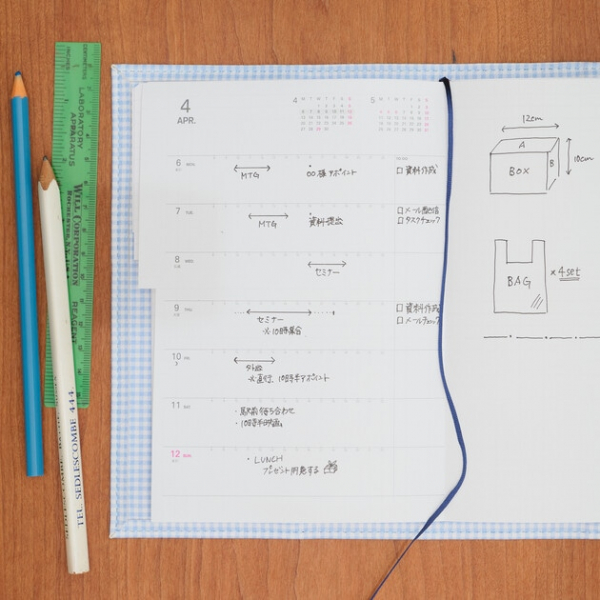 4
APR.
4
5
6
MTG
○○様アポイント
□ 資料作成
7
MTG
資料提出
□ メール
□ タスクチェック
8
セミナー
9
セミナー
※10時集合
□ 資料作成
□ メールチェック
10
※直行、10時半アポイント
11
・駅前待ち合わせ
・10時半映画
12
・LUNCH
プレゼント用意する
12cm
A
B
BOX
10cm
BAG
×4set
LABORATORY
APPARATUS
WILL CORPORATION
ROCHESTER, N.Y.
REAGENT
TEL. SEDLESCOMBE 444.